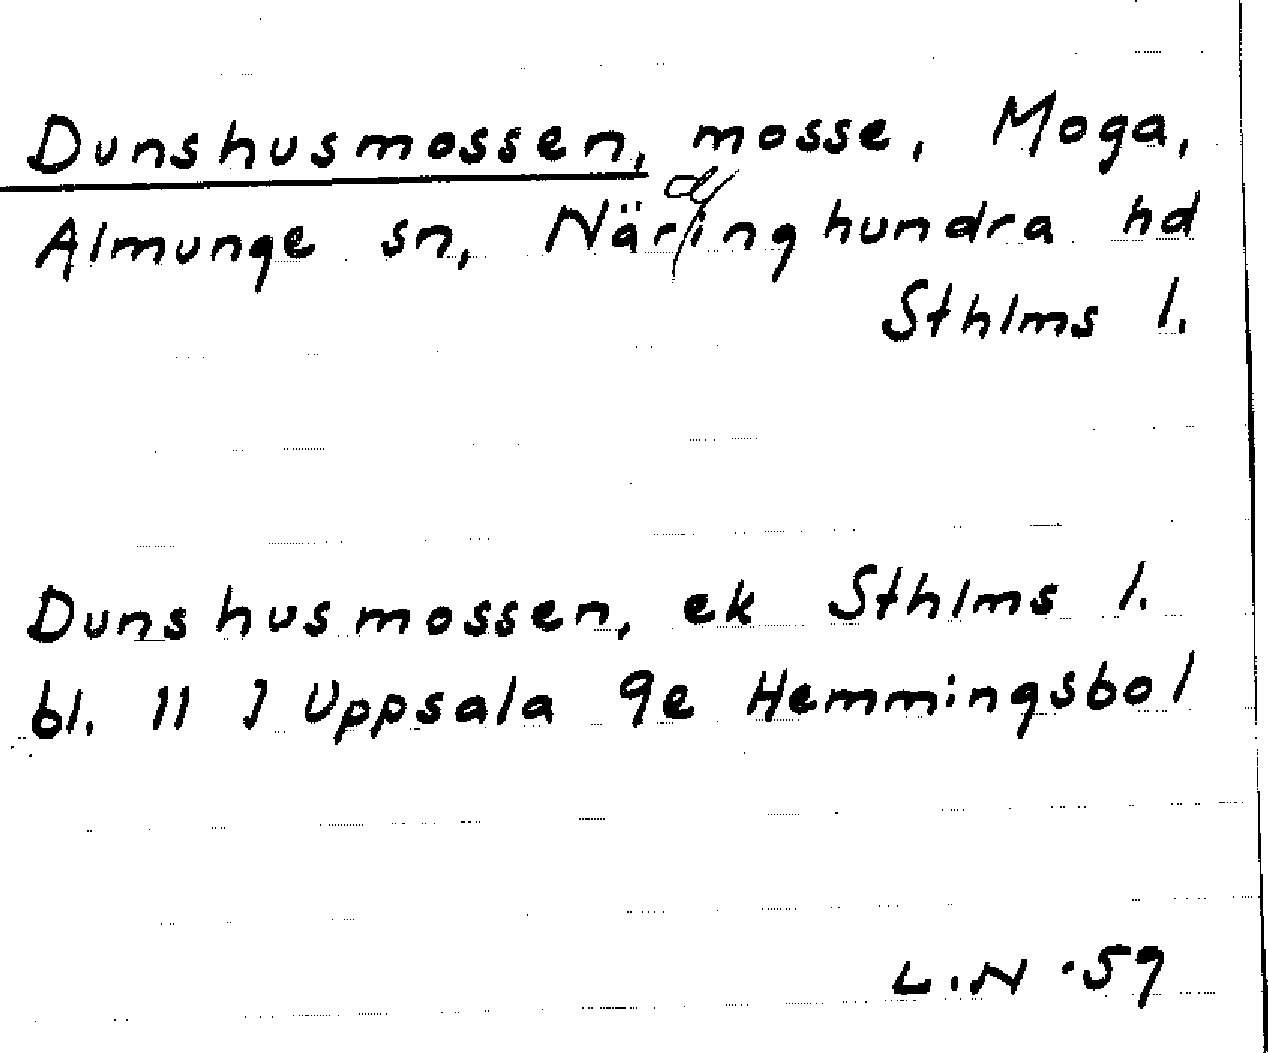 Dunshusmossen, mosse, Moga,
Almunge sn, Närdinghundra hd
Sthlms l.
Dunshusmossen, ek Sthlms l.
bl. 11 J Uppsala 9e Hemmingsbol
L.N -59